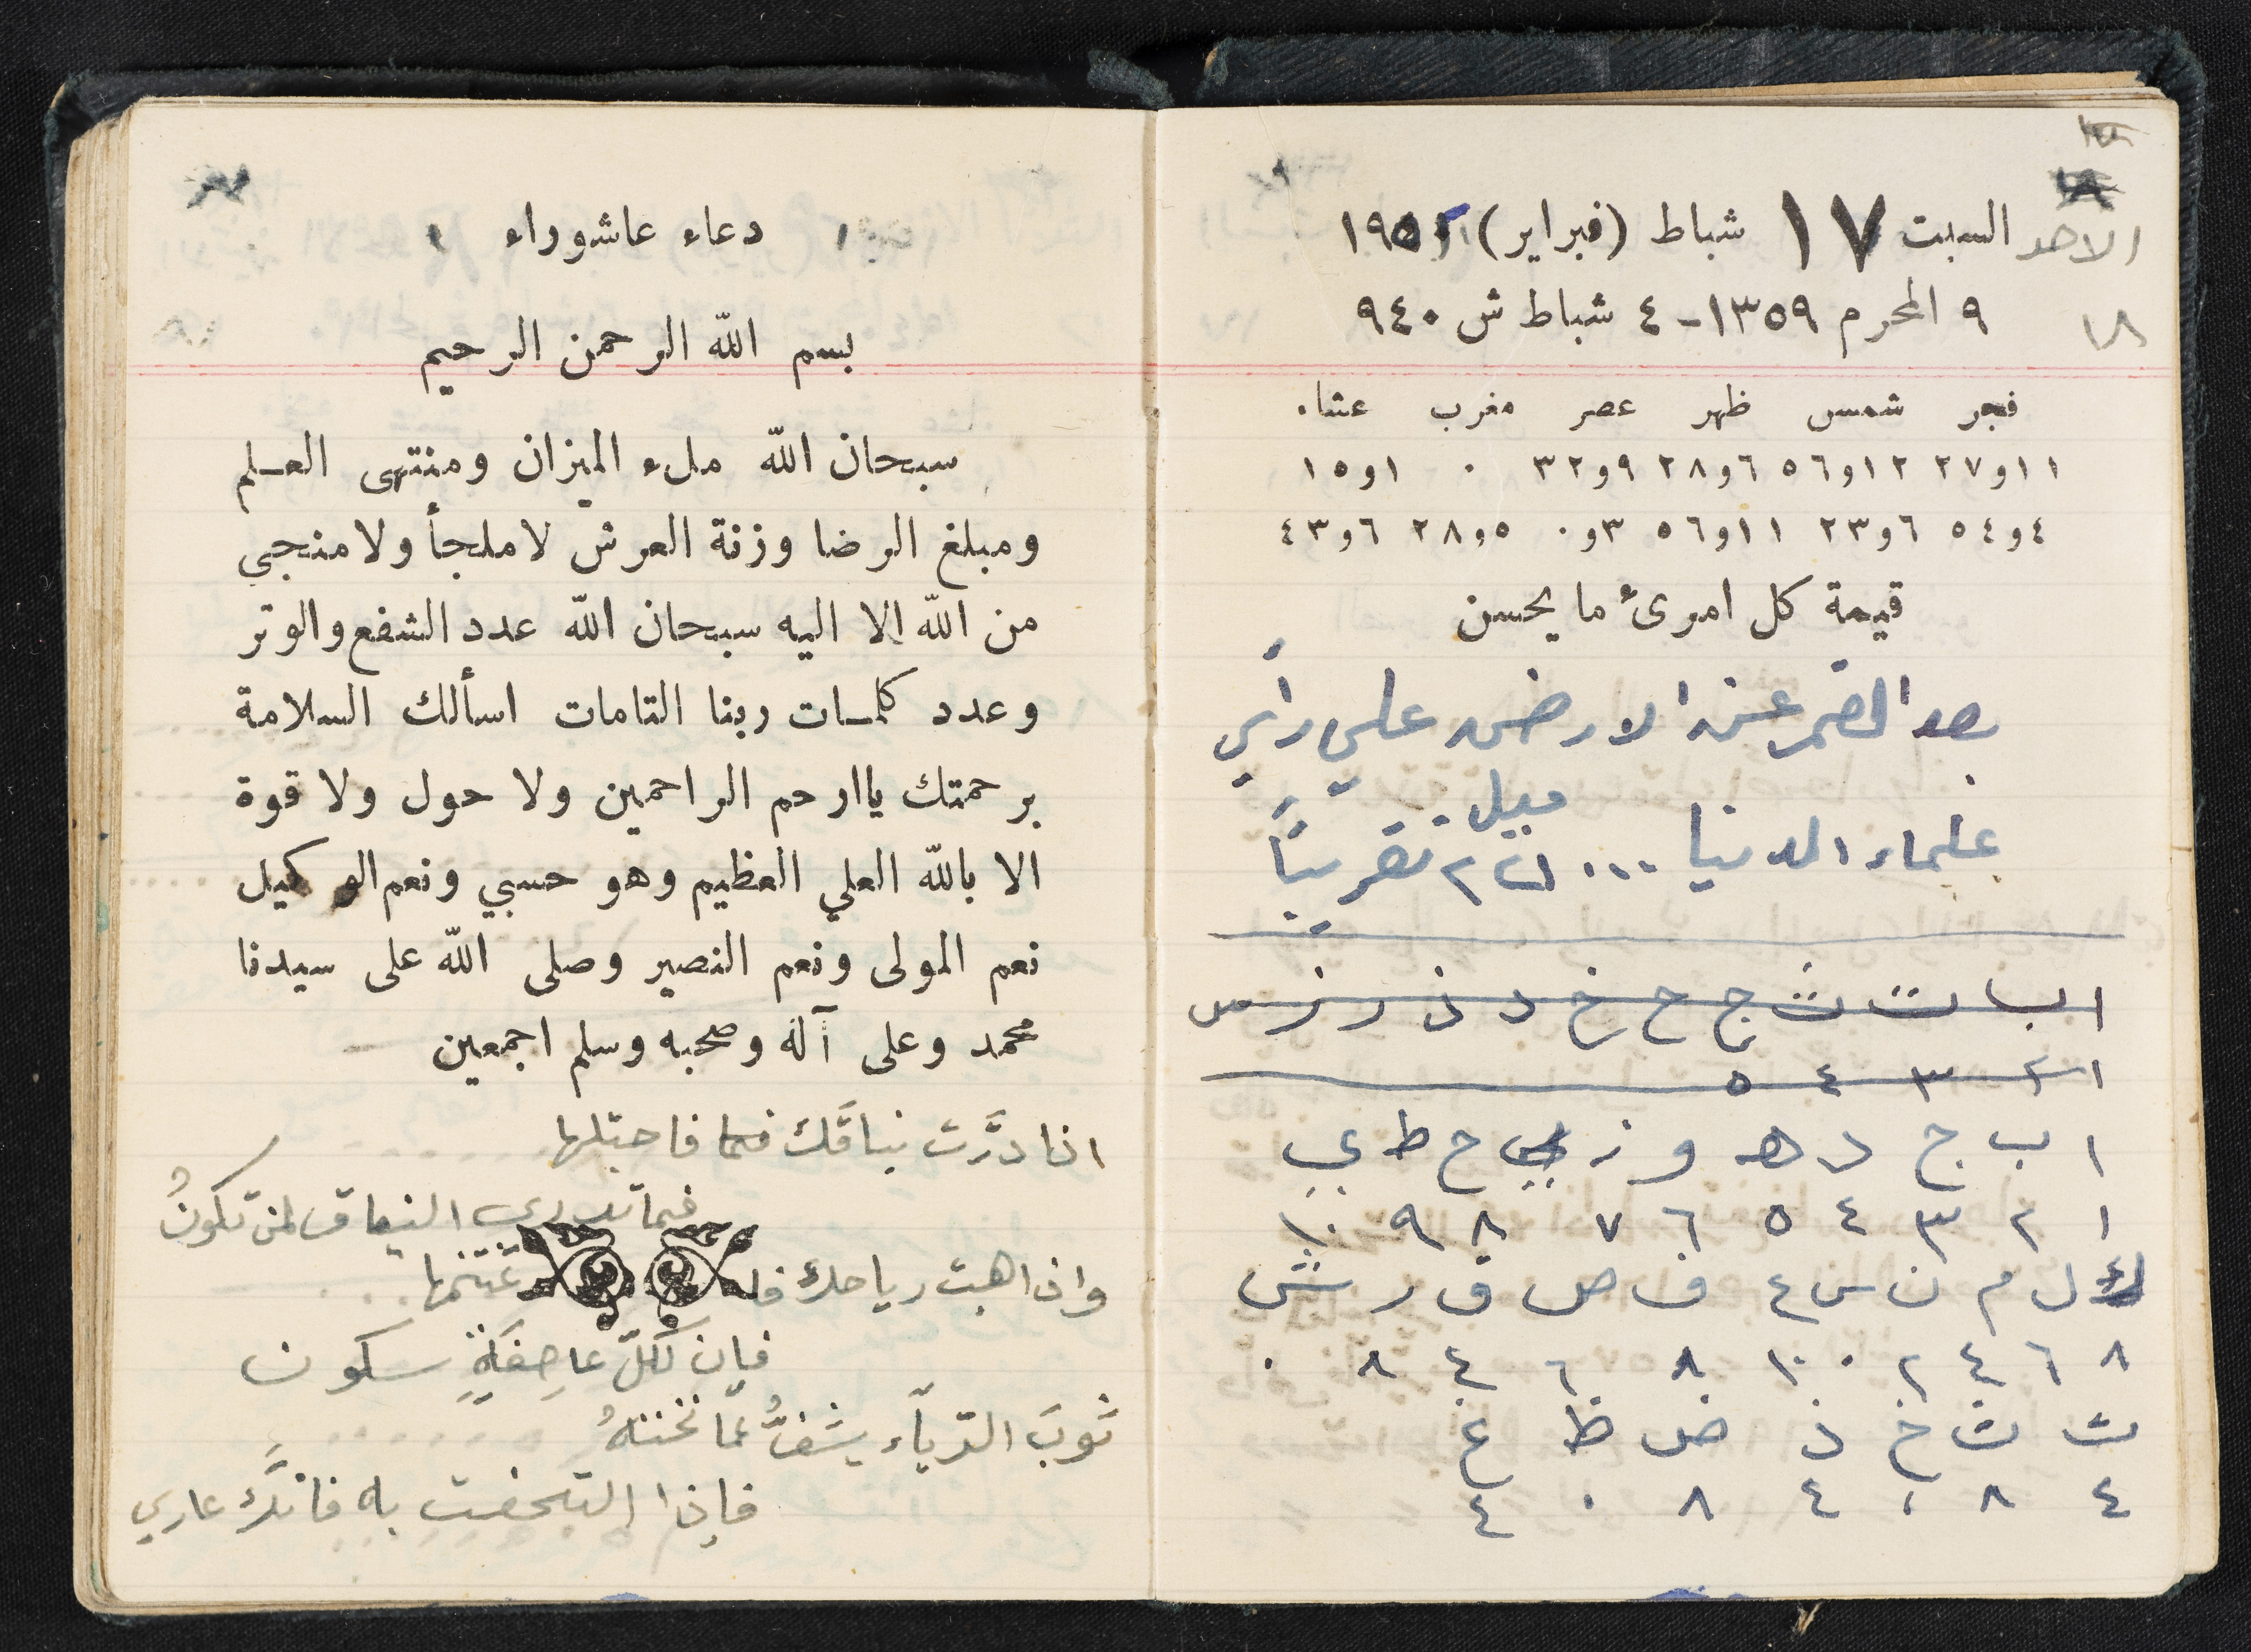 الاحد السبت ١٧ شباط (فبراير) ١٩٥٢
١٨ ٩ المحرم ١٣٥٩-٤ شباط ش ٩٤٠
فجر شمس ظهر عصر مغرب عشاء
١١و٢٧ ١٢و٥٦ ٦و٢٨ ٩و٣٢ ٠ ١و١٥
٤و٥٤ ٦و٢٣ ١١و٥٦ ٣و٠ ٥و٢٨ ٦و٤٣
قيمة كل امرىء ما يحسن
بعد القمر عن الارض على رأي
ميل
علماء الدنيا تقريباً
ا ب ت ث ج ح خ د ذ ر ز س
١ ٢ ٣ ٤ ٥
ا ب ج د ه و ز ح ط ي
١ ٢ ٣ ٤ ٥ ٦ ٧ ٨ ٩ ١٠
ك ل م ن س ع ف ص ق ر ش
٨ ٦ ٤ ٢ ٠ ١٠ ٨ ٦ ٤ ٨ ٠
ت ث خ ذ ض ظ غ
٤ ٨ ٠ ٤ ٨ ٠ ٤
دعاء عاشوراء
بسم الله الرحمن الرحيم
سبحان الله ملء الميزان ومنتهى العلم
ومبلغ الرضا وزنة العرش لا ملجأ ولا منجي
من الله إلا اليه سبحان الله عدد الشفع والوتر
وعدد كلمات ربنا التامات اسألك السلامة
برحمتك يا ارحم الراحمين ولا حول ولا قوة
الا بالله العلي العظيم وهو حسبي ونعم الوكيل
نعم المولى ونعم النصير وصلى الله على سيدنا
محمد وعلى آله وصحبه وسلم اجمعين
اذا درَّت نياقَك فاحتلبها
فما تدري النياق لمن تكونُ
واذا هبت رياحك فا غتنمها
فإن لكلّ عاصِفَةٍ سكون
ثوبَ الريّاء يشفُّ عمّا تحته
فإذا التحفت به فانَّك عاري